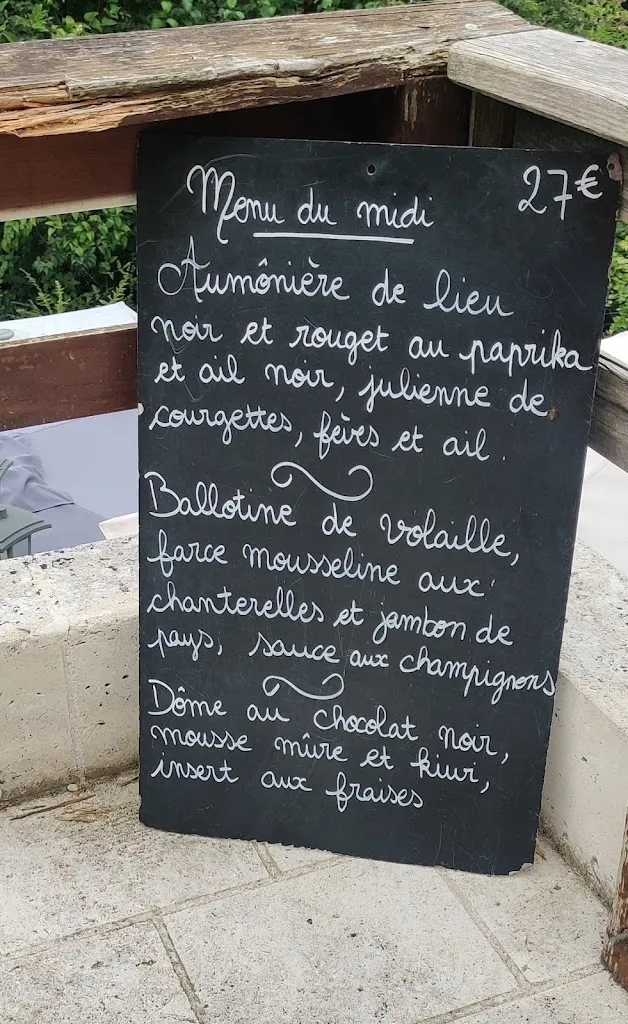 Menu du midi 27€
Aumônière de lieu
noir et rouget au paprika
et ail noir, julienne de
courgettes, fèves et ail.
Ballotine de volaille,
farce mousseline aux
chanterelles et jambon de
pays, sauce aux champignons
Dôme au chocolat noir,
mousse mûre et kiwi,
insert aux fraises